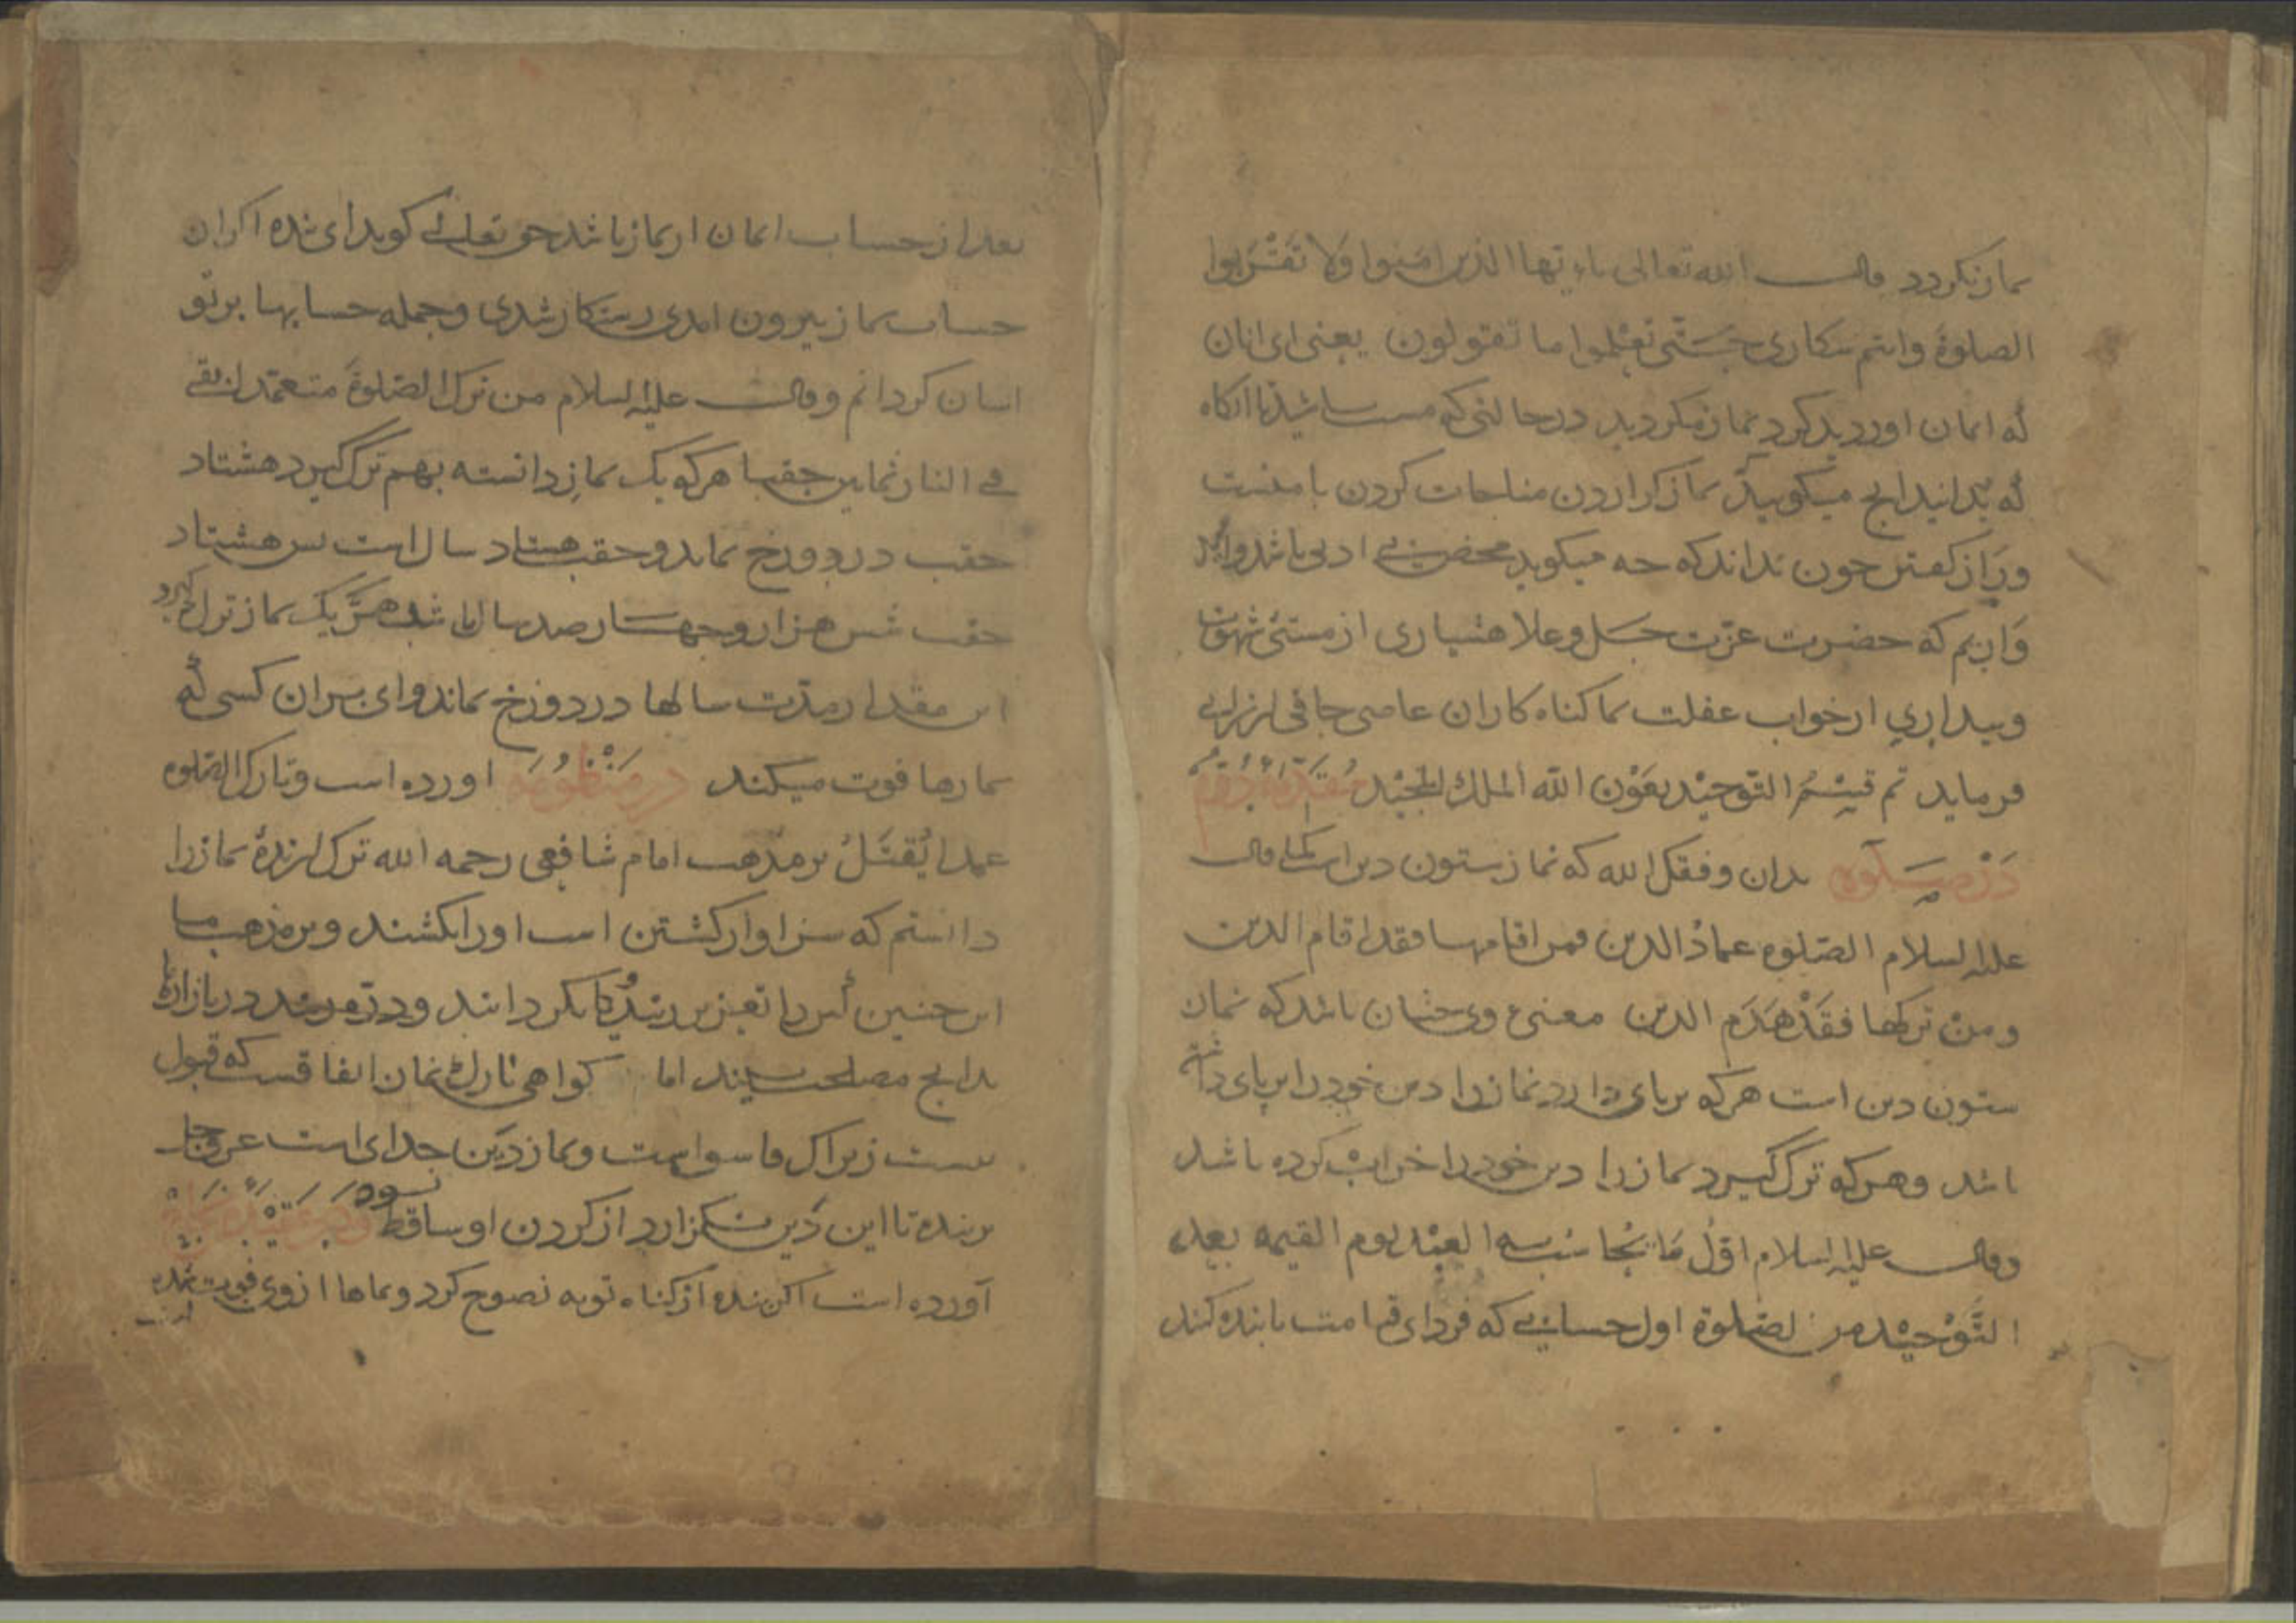 نماز نکردد قال الله تعالی یاءیها الذین امنوا ولا تقربوا
الصلوة وانتم سکاری حتی تعلموا ما تقولون یعنی ای انان
که ایمان اوردید کرد نماز مکردید درحالتی که مست باشید تا انکاه
که بدانید انج میکویید نماز کزاردن مناجات کردن با منست
وراز کفتن جون نداند که جه میکوید محض بی ادبی باشد
که حضرت عزت جل وعلا هشیاری از مستی شهوت
وبیداری ازخواب غفلت بما کناه کاران عاصی جافی ارزانی
فرماید تم قسم التوحید بعون الله الملک المجید مقدمه دوم
در صلوة بدان وفقک الله که نماز ستون دین است قال
علیه السلام الصلوه عماد الدین فمن اقامها فقد اقام الدین
ومن ترکها فقد هدم الدین معنی وی جنان باشد که نماز
ستون دین است هرکه برپای دارد نماز را دین خود را برپای داشته
باشد وهرکه ترک کیرد نماز را دین خود را خراب کرده باشد
وقال علیه السلام اول ما یحاسب به العبد یوم القیمه بعد
التوحید من الصلوة اول حسابی که فردای قیامت با بنده کنند
بعد از حساب ایمان از نماز باشد حق تعالی کوید ای بنده اکر از
حساب نماز بیرون امدی رستکار شدی وجمله حسابها بر تو
اسان کردانم وقال علیه السلام من ترک الصلوة متعمدا بقی
فی النار ثمانین حقبا هرکه یک نماز دانسته بهم ترک کیرد هشتاد
حقب در دوزخ بماند وحقب هشتاد سال است بس هشتاد
حقب شش هزار وجهار صد سال باشد هر یک نماز ترک کیرد
این مقدار مدت سالها در دوزخ بماند وای بران کسی که
نمازها فوت میکند در منظومه اورده است وتارک الصلوه
عمدا یقتل بر مذهب امام شافعی رحمه الله ترک ارنده نماز را
دانستم که سزاوار کشتن است اورا بکشند وبر مذهب ما
این جنین کس را تعزیر کردانند ودر بازارها
بدانج مصلحت بینند اما کواهی تارک نماز اتفاقست که قبول
نیست زیراک فاسق است ونماز دین خدای است عز وجل
بر بنده تا این دین نکزارد از کردن او ساقط نشود ودر عقیده
آورده است اکر بنده از کناه توبه نصوح کرد ونمازها از وی فوت شده
است